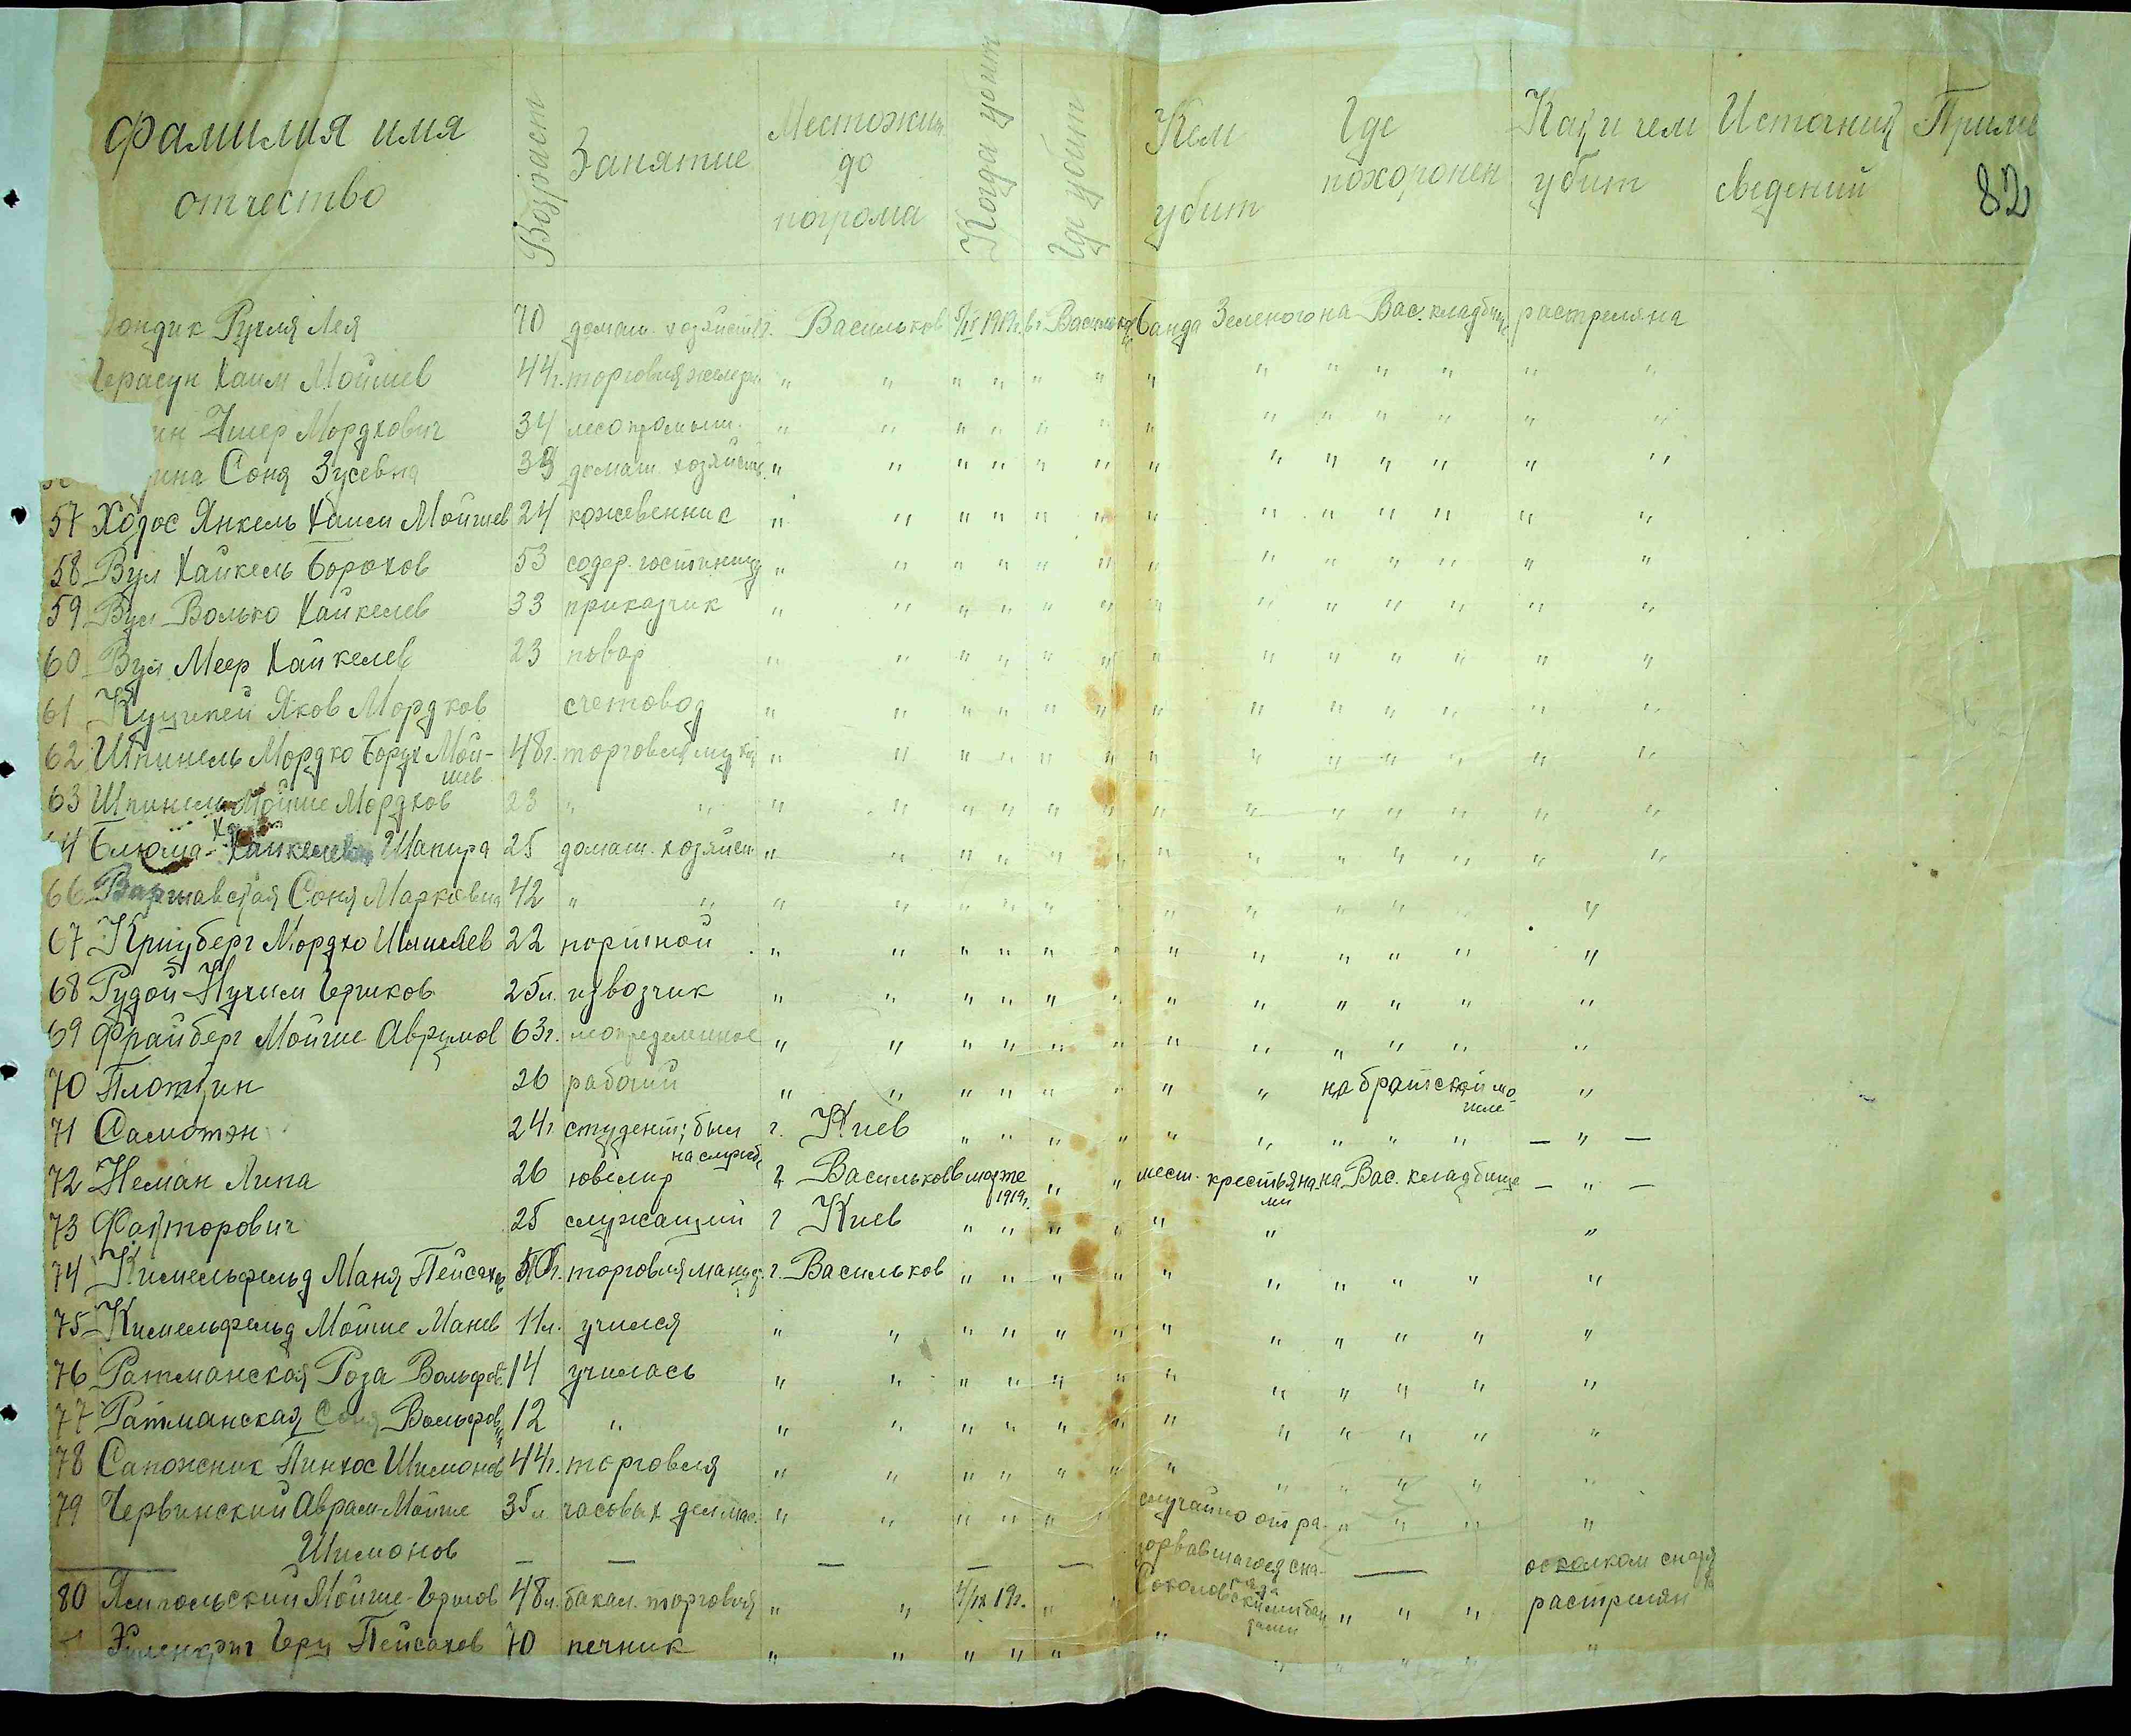 Фамилия имя отчество Возраст Занятие Местожит. до погрома Когда убит Где убит Кем убит Где похоронен Как и чем убит Источник сведений Приме
82
ондик Рухля Лея 70 домаш. хозяйств. г. Васильков 1919г. в г. Василькове банда Зеленого на Вас. кладбищ. растреляна
Герасун Хаим Мойшев 44г. торговля " " " " " " " " " " " " "
ин Ушер Мордкович 34 лесопромыш. " " " " " " " " " " " " "
ина Соня Зусевна 33 домаш. хозяйств. " " " " " " " " " " " " "
57 Ходос Янкель Хаим Мойшев 24 кожевенник " " " " " " " " " " " " "
58 Вул Хайкель Борохов 53 содер. гостиницу " " " " " " " " " " " " "
59 Вул Волько Хайкелев 33 приказчик " " " " " " " " " " " " "
60 Вул Меер Хайкелев 23 повар " " " " " " " " " " " " "
61 Яков Мордков счетовод " " " " " " " " " " " " "
62 Шпинель Мордко Борух Мой-шев 48г. торговля мукой " " " " " " " " " " " " "
63 Шпинель Мойше Мордков 23 " " " " " " " " " " " " " " "
64 Блюма Хайкелевна Шапира 25 домаш. хозяйст. " " " " " " " " " " " " "
66 Варшавская Соня Марковна 42 " " " " " " " " " " " " " "
67 Крицберг Мордко Шмилев 22 портной " " " " " " " " " " " "
68 Рудой Нухим Гершков 25л. извозчик " " " " " " " " " " " "
69 Фрайберг Мойше Аврумов 63г. неопределенное " " " " " " " " " " " "
70 Плоткин 26 рабочий " " " " " " " " на братской мо-гиле "
71 Самотэн 24г. студент; был на службе г. Киев " " " " " " " " " — " —
72 Неман Липа 26 ювелир г. Васильков в марте 1919г. " " мест. крестьяна-ми на Вас. кладбище — " —
73 Факторович 25 служащий г. Киев " " " " " " "
74 Кимельфельд Маня Пейсахов 50г. торговля мануф. г. Васильков " " " " " " " " " "
75 Кимельфельд Мойше Манев 11л. учился " " " " " " " " " " " "
76 Ратманская Роза Вольфов. 14 училась " " " " " " " " " " " "
77 Ратманская Соня Вольфовна 12 " " " " " " " " " " " " "
78 Сапожник Пинхос Шимонов 44г. торговля " " " " " " " " " " " "
79 Червинский Аврам-Мойше Шимонов 35л. часовых дел мас. " " " " " " случайно от ра-зорвавшагося сна-ряда " " " " осколком снаряда
80 Ямпольский Мойше-Гершов 48л. бакал. торговля " " 4/IX 19г. " " Соколовскими бан-дами " " " растрелян
Герш Пейсахов 70 печник " " " " " " " " " " "